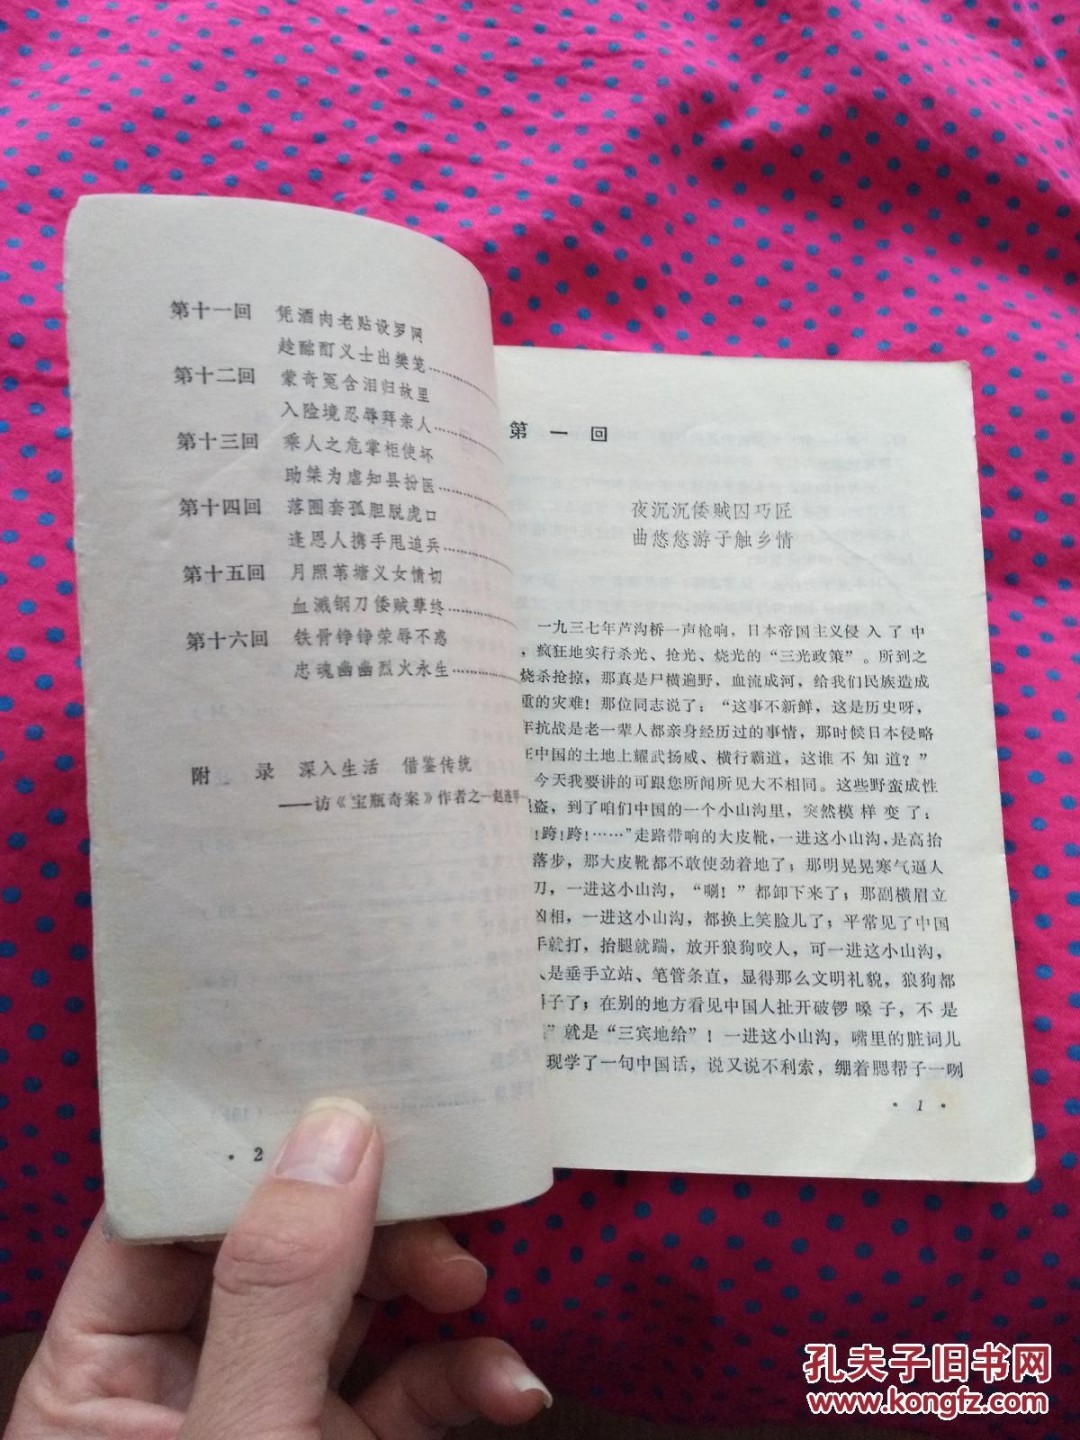 第十一回 凭酒肉老贴设罗网
趁酩酊义士出樊笼
第十二回 蒙奇冤含泪归故里
入险境忍辱拜亲人
第十三回 乘人之危掌柜使坏
助桀为虐知县扮医
第十四回 落圈套孤胆脱虎口
逢恩人携手甩追兵
第十五回 月照苇塘义女情切
血溅钢刀倭贼孽终
第十六回 铁骨铮铮荣辱不惑
忠魂幽幽烈火永生
附录 深入生活 借鉴传统
——访《宝瓶奇案》作者之一赵连甲
· 2
第一回
夜沉沉倭贼囚巧匠
曲悠悠游子触乡情
一九三七年芦沟桥一声枪响，日本帝国主义侵入了中
，疯狂地实行杀光、抢光、烧光的“三光政策”。所到之
烧杀抢掠，那真是尸横遍野，血流成河，给我们民族造成
重的灾难！那位同志说了：“这事不新鲜，这是历史呀，
年抗战是老一辈人都亲身经历过的事情，那时候日本侵略
在中国的土地上耀武扬威、横行霸道，这谁不知道？”
今天我要讲的可跟您所闻所见大不相同。这些野蛮成性
强盗，到了咱们中国的一个小山沟里，突然模样变了：
！跨！跨！……”走路带响的大皮靴，一进这小山沟，是高抬
落步，那大皮靴都不敢使劲着地了；那明晃晃寒气逼人
刀，一进这小山沟，“唰！”都卸下来了；那副横眉立
凶相，一进这小山沟，都换上笑脸儿了；平常见了中国
手就打，抬腿就踹，放开狼狗咬人，可一进这小山沟，
人是垂手立站、笔管条直，显得那么文明礼貌，狼狗都
子了；在别的地方看见中国人扯开破锣嗓子，不是
”就是“三宾地给”！一进这小山沟，嘴里的脏词儿
现学了一句中国话，说又说不利索，绷着腮帮子一咧
· 1 ·
孔夫子旧书网
www.kongfz.com